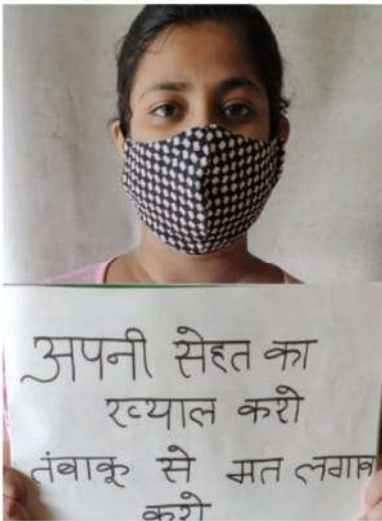 अपनी सेहत का
ख्याल करो
तंबाकू से मत लगाव
करो